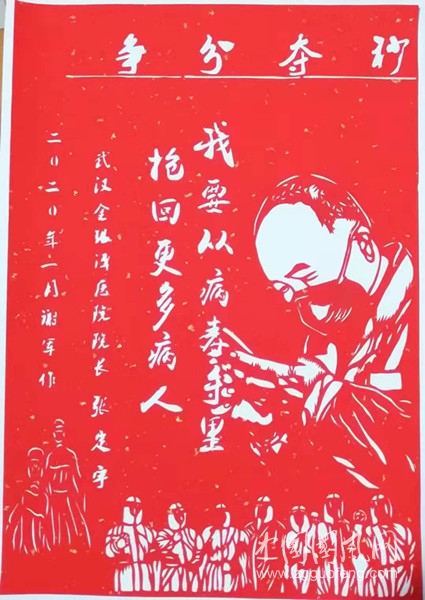 争分夺秒
我要从病毒手里
抢回更多病人
武汉金银潭医院院长 张定宇
二〇二〇年一月谢军作
中国国风网
www.zgguofeng.com